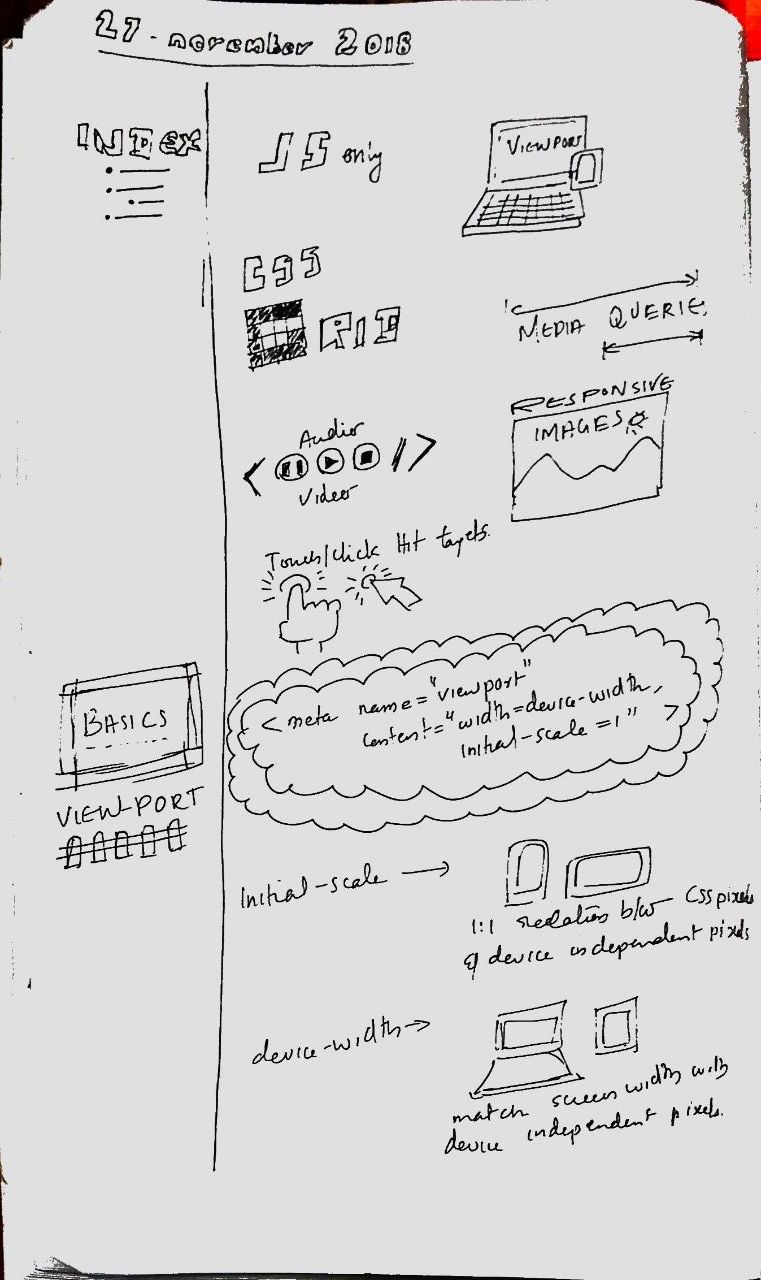 27 - november 2018
INDEX
JS only
VIEWPORT
CSS
GRID
MEDIA QUERIE
Audio
< />
Video
RESPONSIVE
IMAGES
Touch/click Hit targets.
<meta name="viewport"
content="width=device-width,
initial-scale=1" >
BASICS
VIEW-PORT
Initial-scale →
1:1 relation b/w CSS pixels
& device independent pixels
device-width →
match screen width with
device independent pixels.